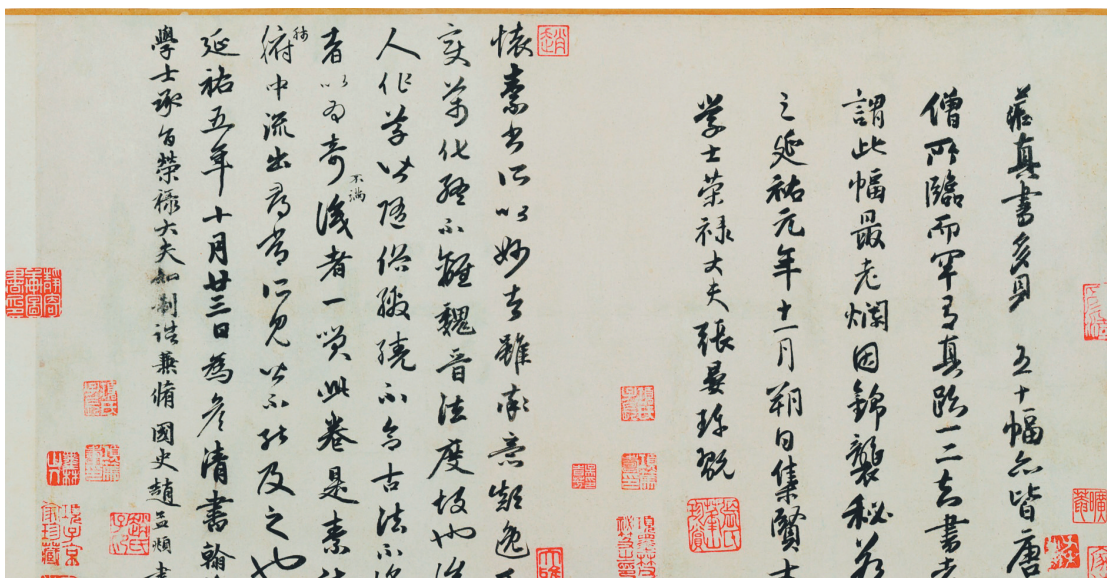 藏真書多見 五十幅亦皆唐
僧所臨而罕有真跡一二知書者
謂此幅最老爛因錦襲秘
之延祐元年十一月朔日集賢
学士荣禄大夫張晏珎翫
懷素書所以妙者雖率意顛逸
變萬化終不離魏晉法度故也後
人作草皆隨俗繳繞不合古法不
者以為奇不滿識者一笑此卷是素
肺腑中流出尋常所見皆不能及之也
延祐五年十月廿三日為彦清書翰
學士承旨榮禄大夫知制誥兼脩國史趙孟頫書